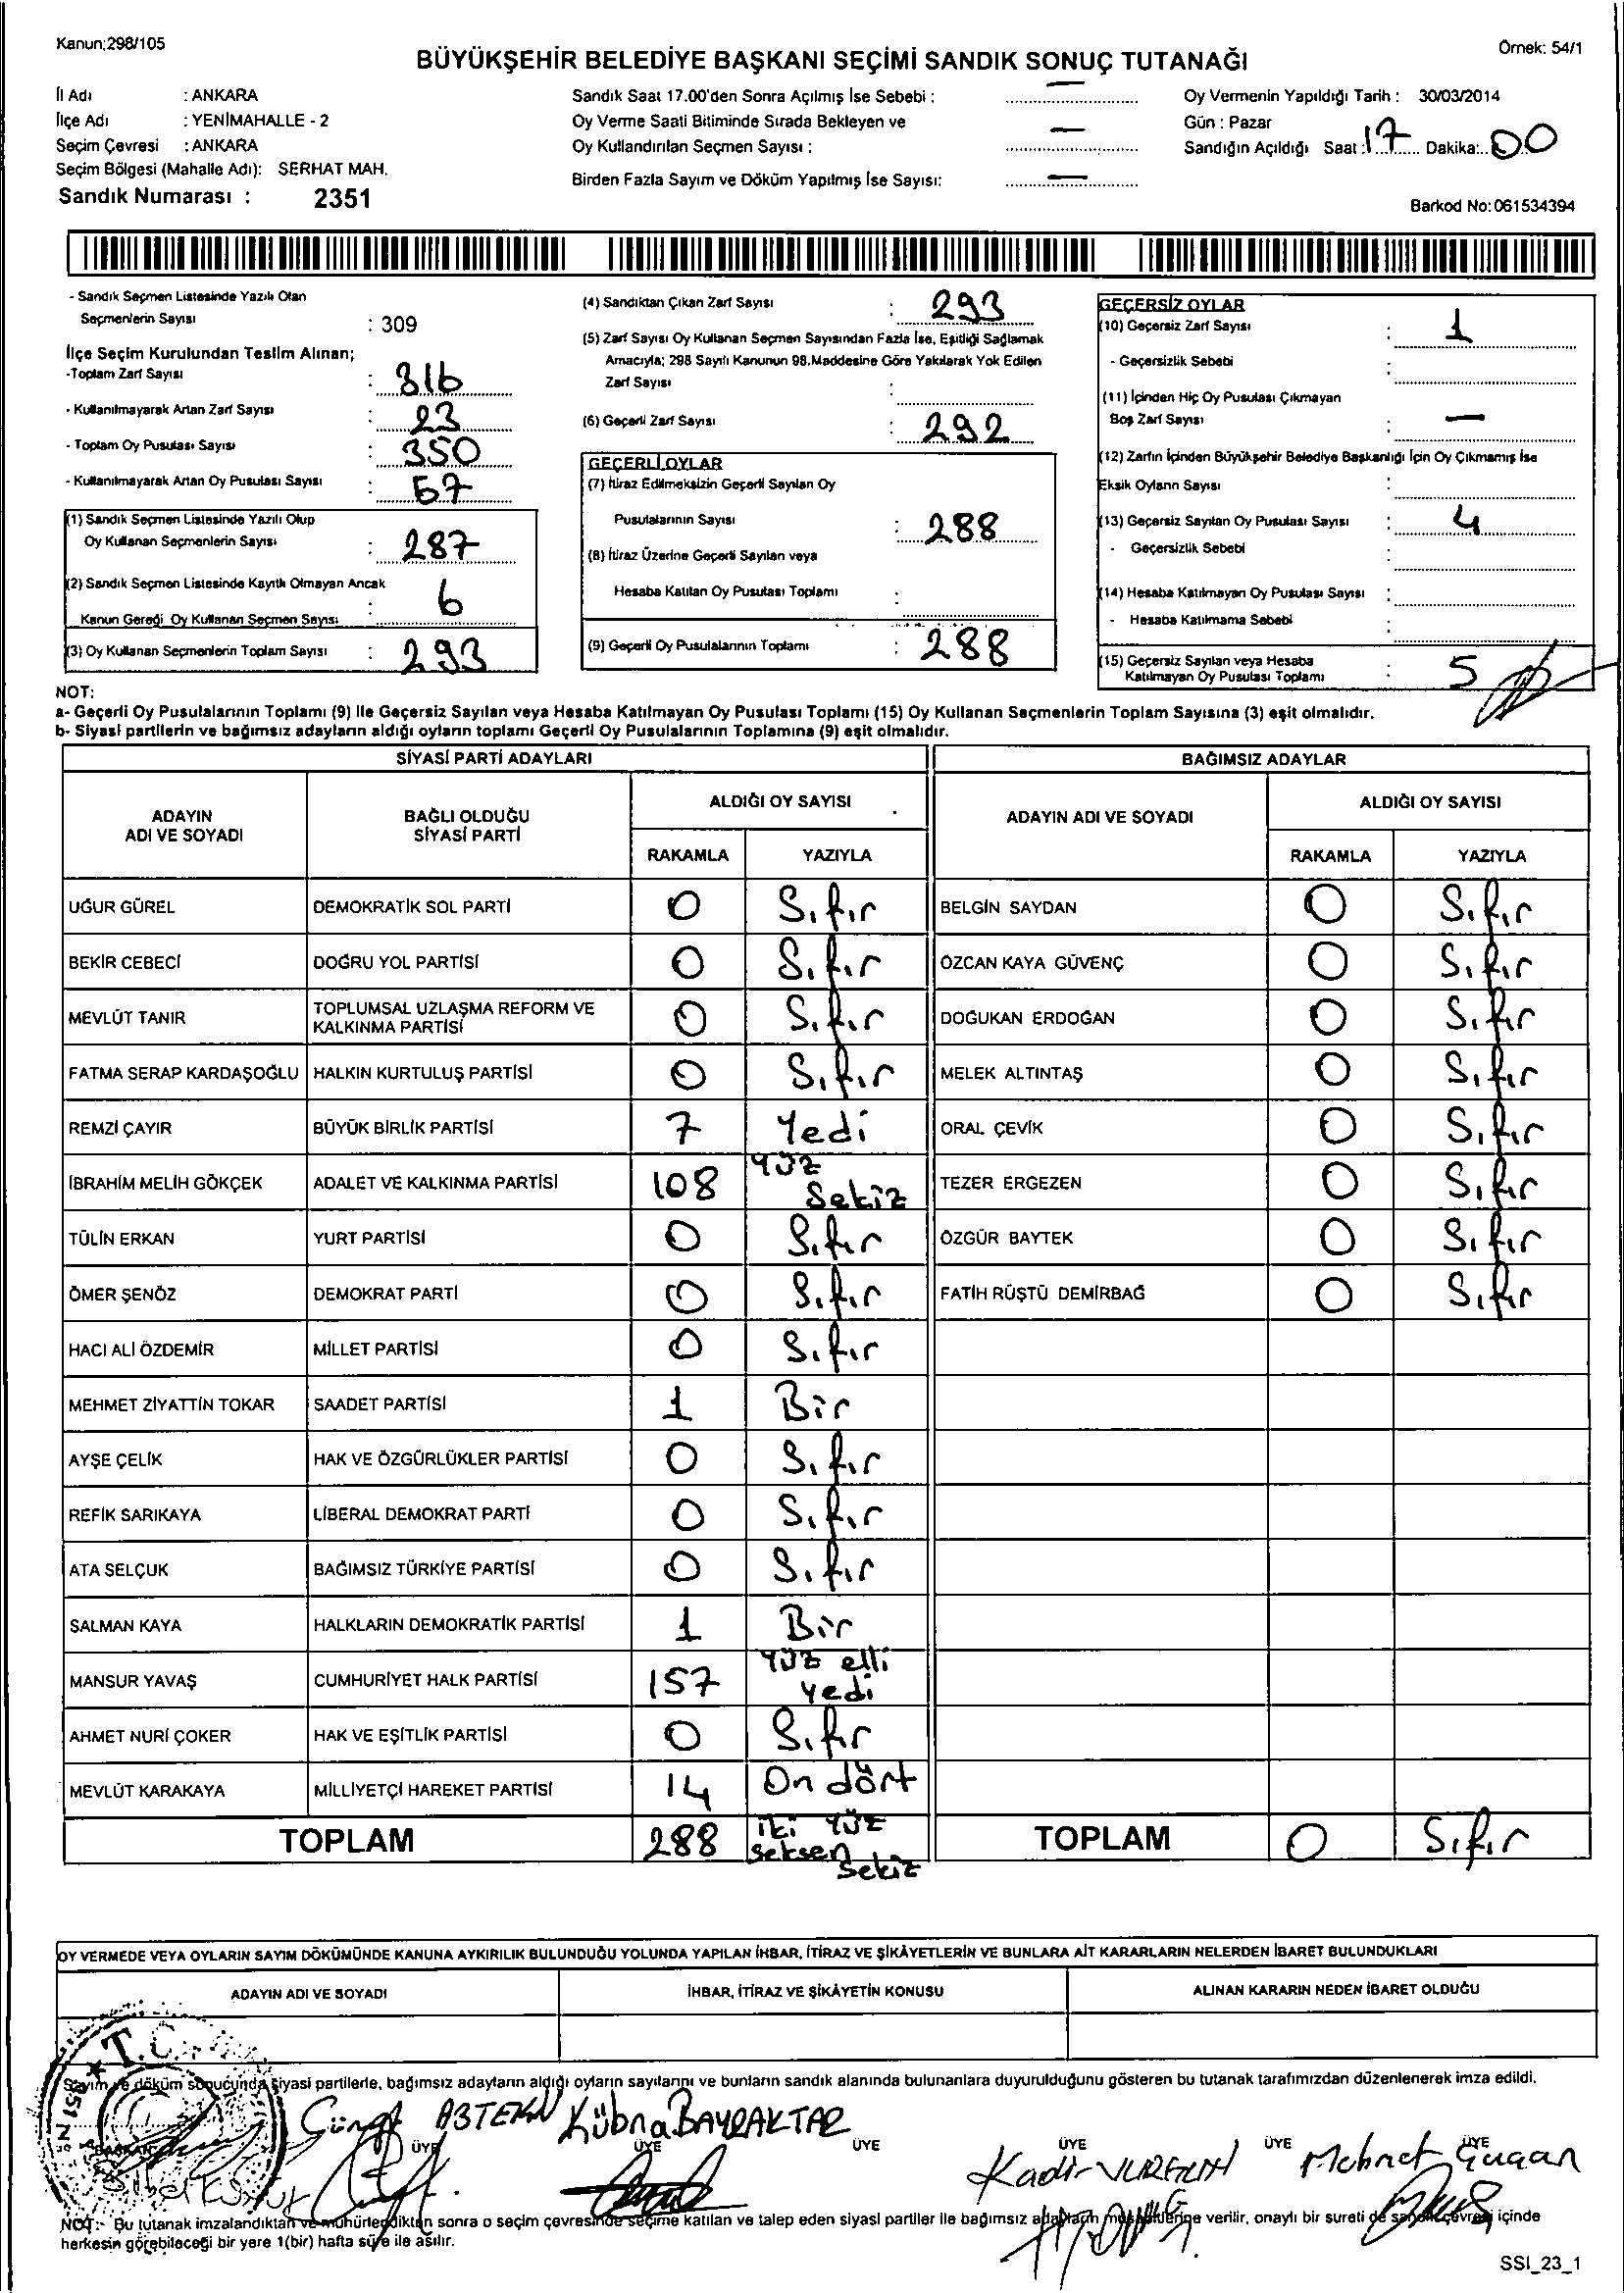 Kanun;298/105
Örnek: 54/1
BÜYÜKŞEHİR BELEDİYE BAŞKANI SEÇİMİ SANDIK SONUÇ TUTANAĞI
İl Adı : ANKARA
İlçe Adı : YENİMAHALLE - 2
Seçim Çevresi : ANKARA
Seçim Bölgesi (Mahalle Adı): SERHAT MAH.
Sandık Numarası : 2351
Sandık Saat 17.00'den Sonra Açılmış İse Sebebi : —
Oy Verme Saati Bitiminde Sırada Bekleyen ve
Oy Kullandırılan Seçmen Sayısı : —
Birden Fazla Sayım ve Döküm Yapılmış İse Sayısı: —
Oy Vermenin Yapıldığı Tarih : 30/03/2014
Gün : Pazar
Sandığın Açıldığı Saat : 17 Dakika: 00
Barkod No: 061534394
- Sandık Seçmen Listesinde Yazılı Olan
Seçmenlerin Sayısı : 309
İlçe Seçim Kurulundan Teslim Alınan;
-Toplam Zarf Sayısı : 316
- Kullanılmayarak Artan Zarf Sayısı : 23
- Toplam Oy Pusulası Sayısı : 350
- Kullanılmayarak Artan Oy Pusulası Sayısı : 57
(1) Sandık Seçmen Listesinde Yazılı Olup
Oy Kullanan Seçmenlerin Sayısı : 287
(2) Sandık Seçmen Listesinde Kayıtlı Olmayan Ancak
Kanun Gereği Oy Kullanan Seçmen Sayısı : 6
(3) Oy Kullanan Seçmenlerin Toplam Sayısı : 293
(4) Sandıktan Çıkan Zarf Sayısı : 293
(5) Zarf Sayısı Oy Kullanan Seçmen Sayısından Fazla İse, Eşitliği Sağlamak
Amacıyla; 298 Sayılı Kanunun 98.Maddesine Göre Yakılarak Yok Edilen
Zarf Sayısı :
(6) Geçerli Zarf Sayısı : 292
GEÇERLİ OYLAR
(7) İtiraz Edilmeksizin Geçerli Sayılan Oy
Pusulalarının Sayısı : 288
(8) İtiraz Üzerine Geçerli Sayılan veya
Hesaba Katılan Oy Pusulası Toplamı :
(9) Geçerli Oy Pusulalarının Toplamı : 288
GEÇERSİZ OYLAR
(10) Geçersiz Zarf Sayısı : 1
- Geçersizlik Sebebi :
(11) İçinden Hiç Oy Pusulası Çıkmayan
Boş Zarf Sayısı : —
(12) Zarfın İçinden Büyükşehir Belediye Başkanlığı İçin Oy Çıkmamış İse
Eksik Oyların Sayısı :
(13) Geçersiz Sayılan Oy Pusulası Sayısı : 4
- Geçersizlik Sebebi :
(14) Hesaba Katılmayan Oy Pusulası Sayısı :
- Hesaba Katılmama Sebebi :
(15) Geçersiz Sayılan veya Hesaba
Katılmayan Oy Pusulası Toplamı : 5
NOT:
a- Geçerli Oy Pusulalarının Toplamı (9) ile Geçersiz Sayılan veya Hesaba Katılmayan Oy Pusulası Toplamı (15) Oy Kullanan Seçmenlerin Toplam Sayısına (3) eşit olmalıdır.
b- Siyasi partilerin ve bağımsız adayların aldığı oyların toplamı Geçerli Oy Pusulalarının Toplamına (9) eşit olmalıdır.
SİYASİ PARTİ ADAYLARI BAĞIMSIZ ADAYLAR
ADAYIN ADI VE SOYADI BAĞLI OLDUĞU SİYASİ PARTİ ALDIĞI OY SAYISI ADAYIN ADI VE SOYADI ALDIĞI OY SAYISI
RAKAMLA YAZIYLA RAKAMLA YAZIYLA
UĞUR GÜREL DEMOKRATİK SOL PARTİ 0 Sıfır BELGİN SAYDAN 0 Sıfır
BEKİR CEBECİ DOĞRU YOL PARTİSİ 0 Sıfır ÖZCAN KAYA GÜVENÇ 0 Sıfır
MEVLÜT TANIR TOPLUMSAL UZLAŞMA REFORM VE KALKINMA PARTİSİ 0 Sıfır DOĞUKAN ERDOĞAN 0 Sıfır
FATMA SERAP KARDAŞOĞLU HALKIN KURTULUŞ PARTİSİ 0 Sıfır MELEK ALTINTAŞ 0 Sıfır
REMZİ ÇAYIR BÜYÜK BİRLİK PARTİSİ 7 Yedi ORAL ÇEVİK 0 Sıfır
İBRAHİM MELİH GÖKÇEK ADALET VE KALKINMA PARTİSİ 108 Yüz Sekiz TEZER ERGEZEN 0 Sıfır
TÜLİN ERKAN YURT PARTİSİ 0 Sıfır ÖZGÜR BAYTEK 0 Sıfır
ÖMER ŞENÖZ DEMOKRAT PARTİ 0 Sıfır FATİH RÜŞTÜ DEMİRBAĞ 0 Sıfır
HACI ALİ ÖZDEMİR MİLLET PARTİSİ 0 Sıfır
MEHMET ZİYATTİN TOKAR SAADET PARTİSİ 1 Bir
AYŞE ÇELİK HAK VE ÖZGÜRLÜKLER PARTİSİ 0 Sıfır
REFİK SARIKAYA LİBERAL DEMOKRAT PARTİ 0 Sıfır
ATA SELÇUK BAĞIMSIZ TÜRKİYE PARTİSİ 0 Sıfır
SALMAN KAYA HALKLARIN DEMOKRATİK PARTİSİ 1 Bir
MANSUR YAVAŞ CUMHURİYET HALK PARTİSİ 157 Yüz elli yedi
AHMET NURİ ÇOKER HAK VE EŞİTLİK PARTİSİ 0 Sıfır
MEVLÜT KARAKAYA MİLLİYETÇİ HAREKET PARTİSİ 14 On dört
TOPLAM 288 iki yüz seksen sekiz TOPLAM 0 Sıfır
OY VERMEDE VEYA OYLARIN SAYIM DÖKÜMÜNDE KANUNA AYKIRILIK BULUNDUĞU YOLUNDA YAPILAN İHBAR, İTİRAZ VE ŞİKÂYETLERİN VE BUNLARA AİT KARARLARIN NELERDEN İBARET BULUNDUKLARI
ADAYIN ADI VE SOYADI İHBAR, İTİRAZ VE ŞİKÂYETİN KONUSU ALINAN KARARIN NEDEN İBARET OLDUĞU
T.C.
Sayım ve döküm sonucunda siyasi partilerle, bağımsız adayların aldığı oyların sayılarını ve bunların sandık alanında bulunanlara duyurulduğunu gösteren bu tutanak tarafımızdan düzenlenerek imza edildi.
Kübra BAYRAKTAR
BAŞKAN ÜYE ÜYE ÜYE ÜYE ÜYE ÜYE
Kadir Mehmet
NOT:- Bu tutanak imzalandıktan ve mühürlendikten sonra o seçim çevresinde seçime katılan ve talep eden siyasi partiler ile bağımsız adayların müşahitlerine verilir, onaylı bir sureti de sandık çevresi içinde
herkesin görebileceği bir yere 1(bir) hafta süre ile asılır.
SSI_23_1